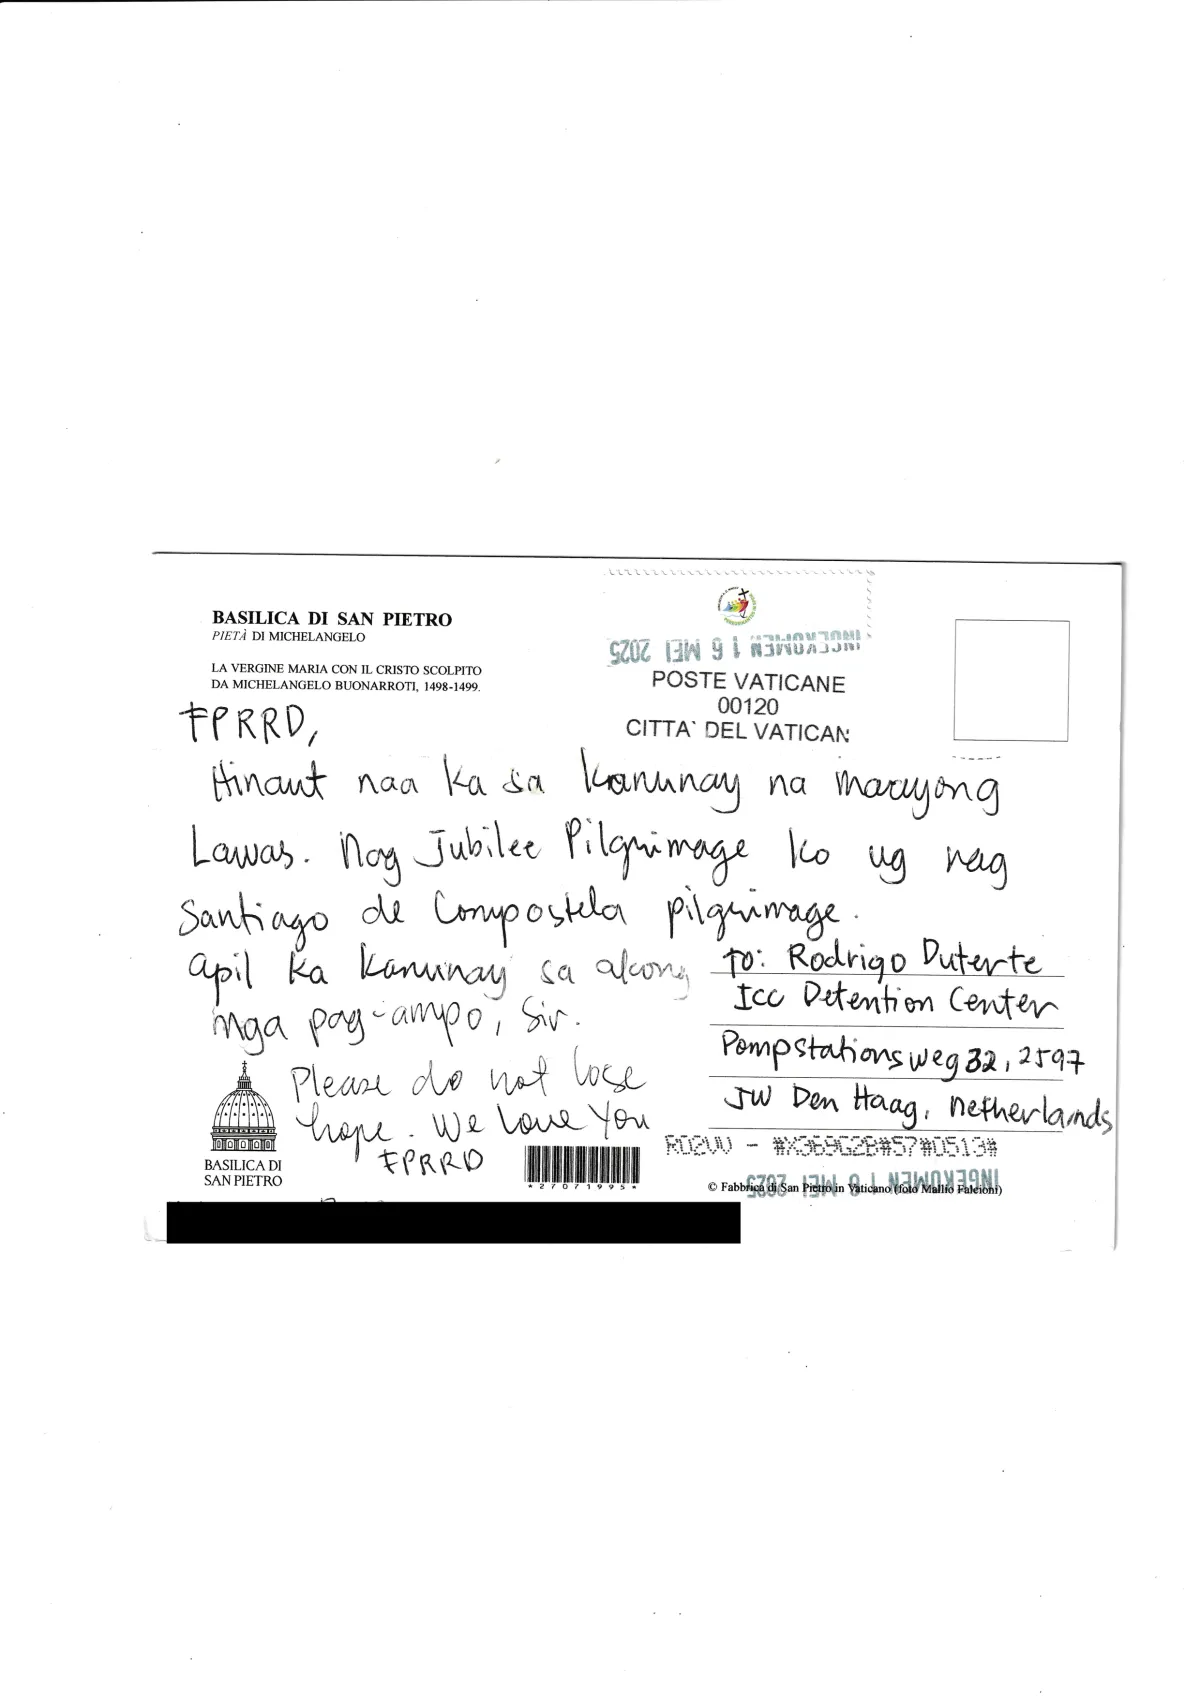 BASILICA DI SAN PIETRO
PIETÀ DI MICHELANGELO
LA VERGINE MARIA CON IL CRISTO SCOLPITO
DA MICHELANGELO BUONARROTI, 1498-1499.
INGEKOMEN 16 MEI 2025
POSTE VATICANE
00120
CITTA` DEL VATICAN
FPRRD,
Hinaut naa ka sa kanunay na maayong
Lawas. Nag Jubilee Pilgrimage ko ug nag
Santiago de Compostela pilgrimage.
apil ka kanunay sa akong
mga pag-ampo, Sir.
Please do not lose
hope. We love You
FPRRD
TO: Rodrigo Duterte
ICC Detention Center
Pompstationsweg 32, 2597
JW Den Haag, Netherlands
BASILICA DI
SAN PIETRO
*27071995*
© Fabbrica di San Pietro in Vaticano (foto Mallio Falcioni)